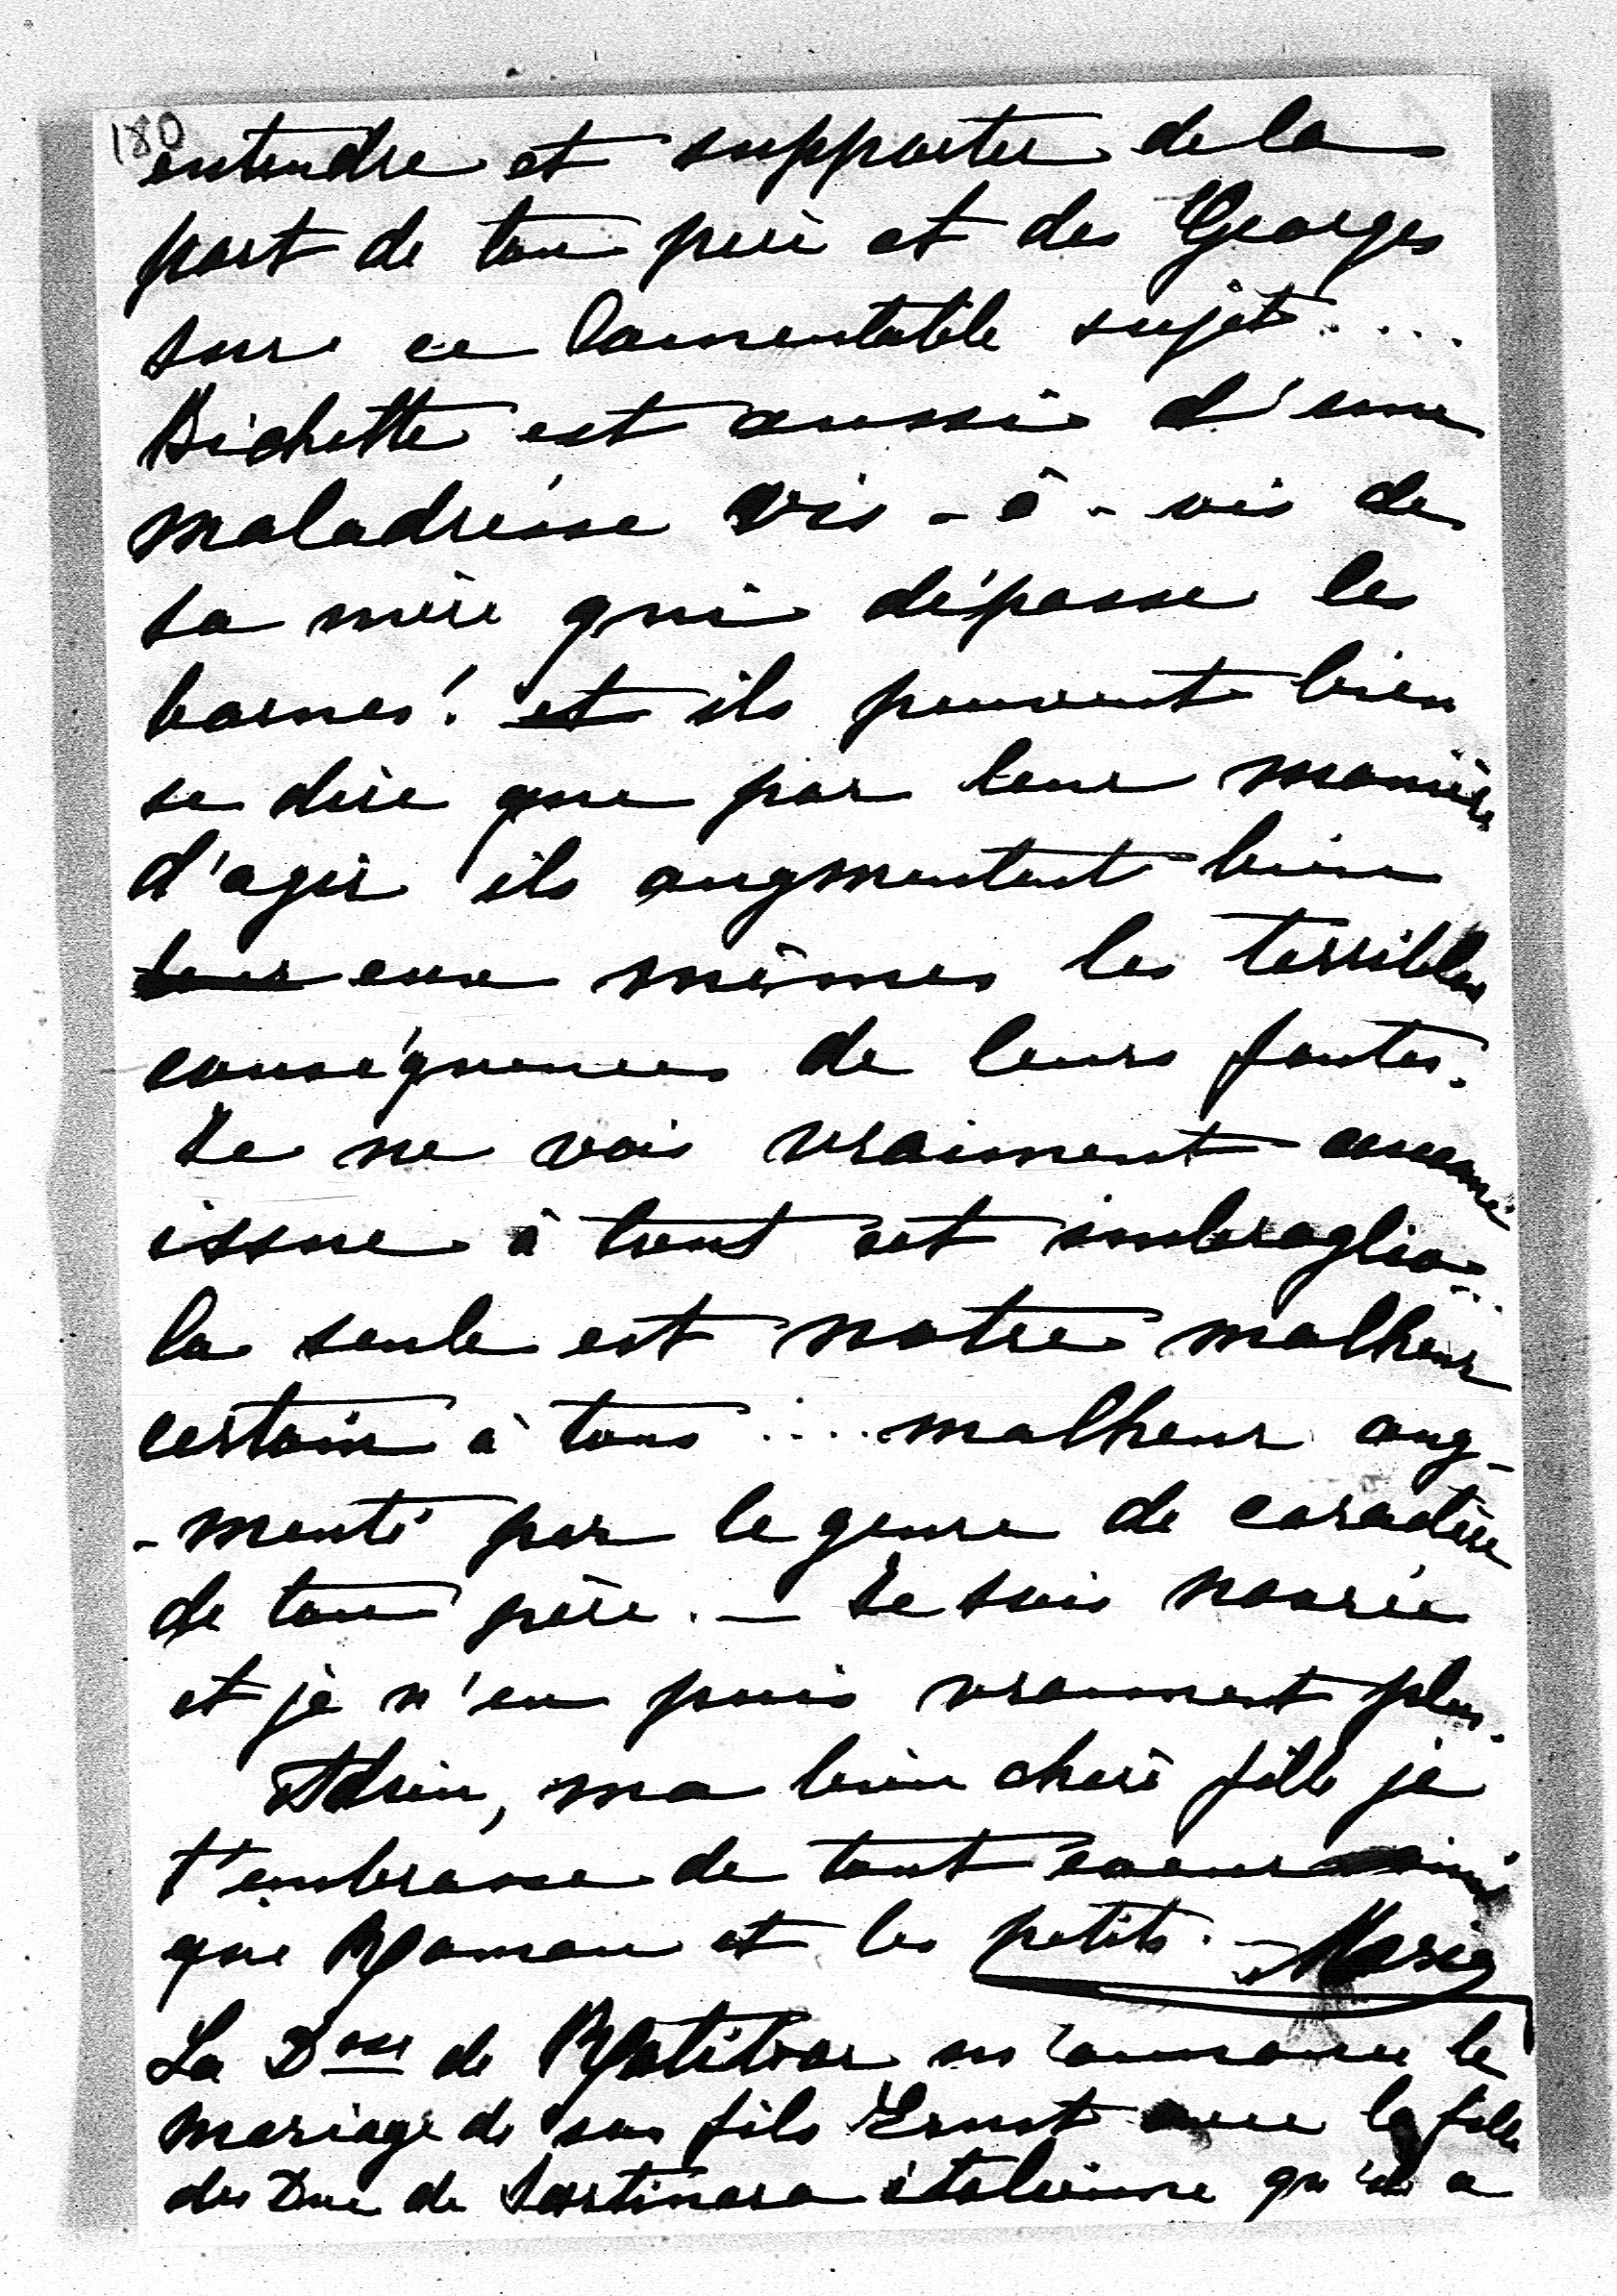 180
entendre et supporter de la
part de ton père et des Georges
sur ce lamentable sujet....
Bichette est aussi d'une
maladresse vis-à-vis de
sa mère qui dépasse les
bornes! et ils peuvent bien
se dire que par leur manière
d'agir ils augmentent bien
eux mêmes les terribles
conséquences de leurs fautes.
Je ne vois vraiment aucune
issue à tout cet imbraglio...
la seule est notre malheur
certain à tous .... malheur aug-
-menté par le genre de caractère
de ton père. — Je suis navrée
et je n'en puis vraiment plus.
Adieu, ma bien chère fille je
t'embrasse de tout coeur ainsi
que Maman et les petits. — Marie
La Dsse de Ratibor m'annonce le
mariage de son fils Ernst avec la fille
du Duc de Sartirana italienne qu'il a